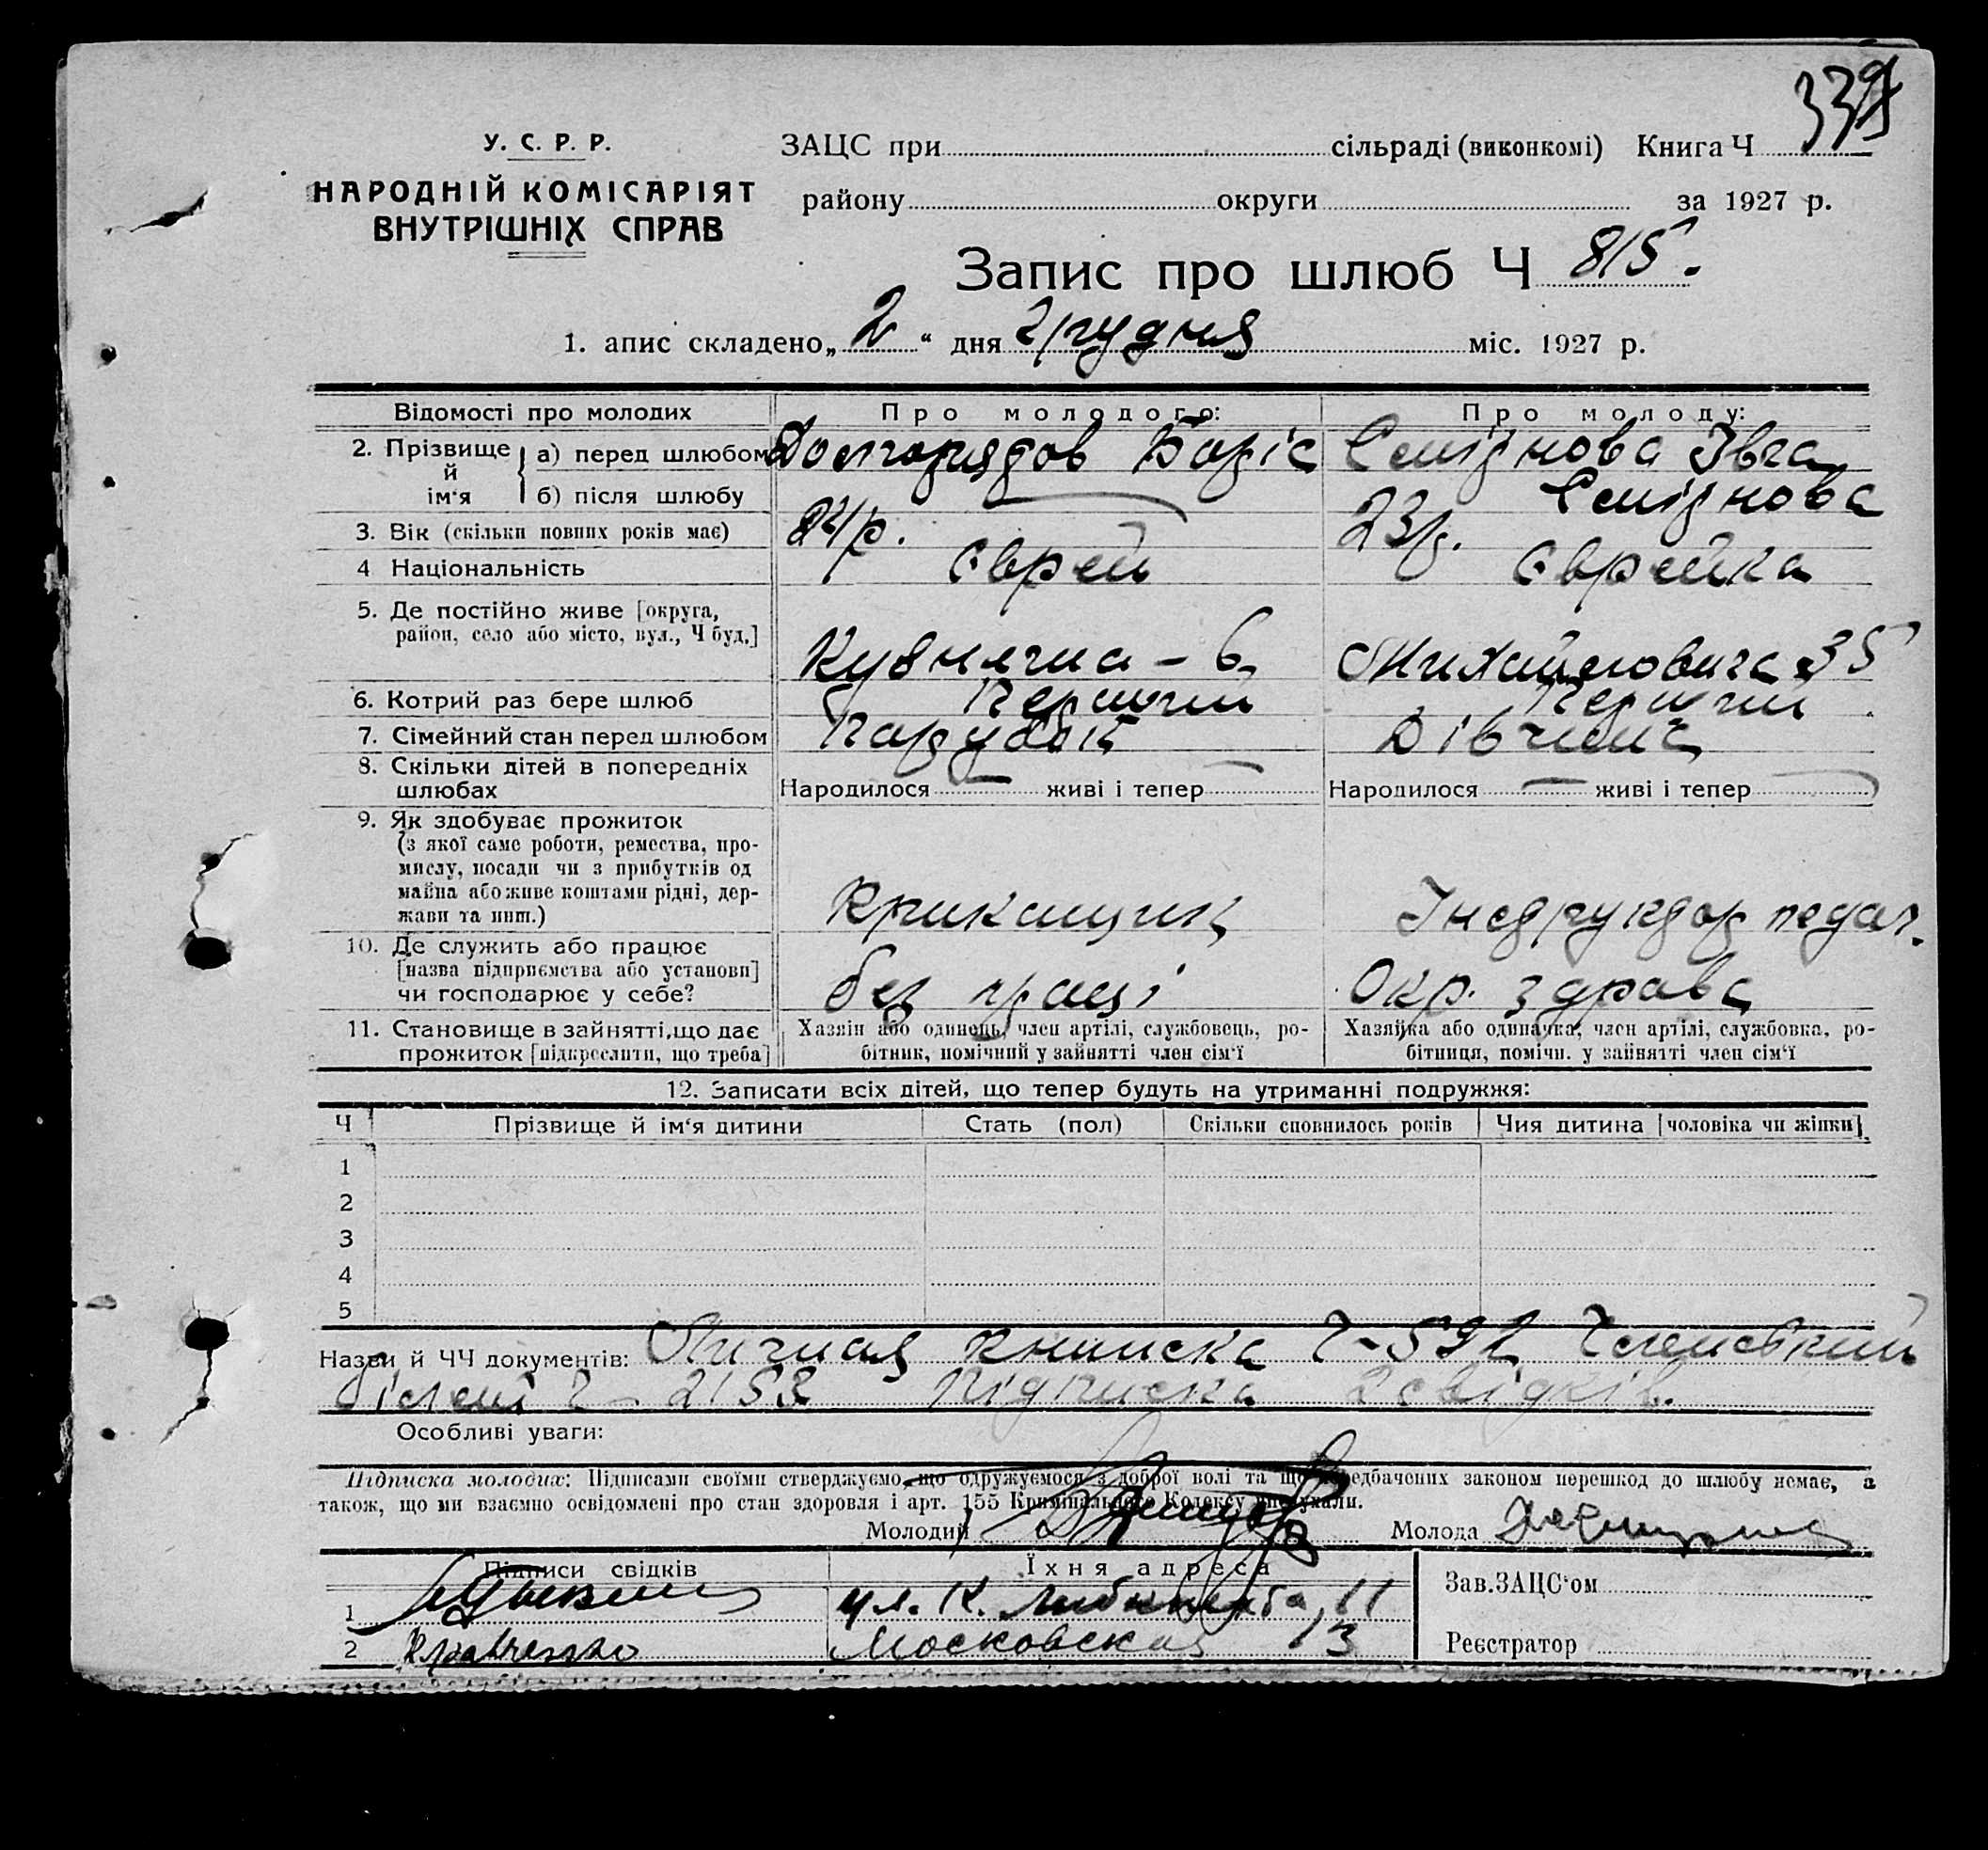 339
У. С. Р. Р.
НАРОДНІЙ КОМІСАРІЯТ
ВНУТРІШНІХ СПРАВ
ЗАЦС при сільраді (виконкомі) Книга Ч
району округи за 1927 р.
Запис про шлюб Ч 815.
1. апис складено „2“ дня Грудня міс. 1927 р.
Відомості про молодих
Про молодого:
Про молоду:
2. Прізвище й ім‘я
а) перед шлюбом
Долгорядов Боріс
Смірнова Івга
б) після шлюбу
Смірнова
3. Вік (скільки повних років має)
24р.
23р.
4 Національність
Єврей
Єврейка
5. Де постійно живе [округа,
район, село або місто, вул., Ч буд.]
Кузнечна - 6
Михайловича 35
6. Котрий раз бере шлюб
Перший
Перший
7. Сімейний стан перед шлюбом
Парубок
Дівчина
8. Скільки дітей в попередніх
шлюбах
Народилося — живі і тепер —
Народилося — живі і тепер —
9. Як здобуває прожиток
(з якої саме роботи, ремества, про-
мислу, посади чи з прибутків од
майна або живе коштами рідні, дер-
жави та инш.)
Прикащик
Інструктор педаг.
10. Де служить або працює
[назва підприємства або установи]
чи господарює у себе?
без праці
Окр. здрава
11. Становище в зайнятті, що дає
прожиток [підкреслити, що треба]
Хазяїн або одинець, член артілі, службовець, ро-
бітник, помічний у зайнятті член сім‘ї
Хазяйка або одиначка, член артілі, службовка, ро-
бітниця, помічн. у зайнятті член сім‘ї
12. Записати всіх дітей, що тепер будуть на утриманні подружжя:
Ч Прізвище й ім‘я дитини Стать (пол) Скільки сповнилось років Чия дитина [чоловіка чи жінки]
1
2
3
4
5
Назви й ЧЧ документів: Личная книжка Ч-592 Членський
білет Ч - 2153 Підписка 2 свідків.
Особливі уваги:
Підписка молодих: Підписами своїми стверджуємо, що одружуємося з доброї волі та що передбачених законом перешкод до шлюбу немає, а
також, що ми взаємно освідомлені про стан здоровля і арт. 155 Кримінального Кодексу вислухали.
Молодий Молода
Підписи свідків Їхня адреса
1 ул. К. Либкнехта, 11
2 Московская 13
Зав.ЗАЦС‘ом
Реєстратор